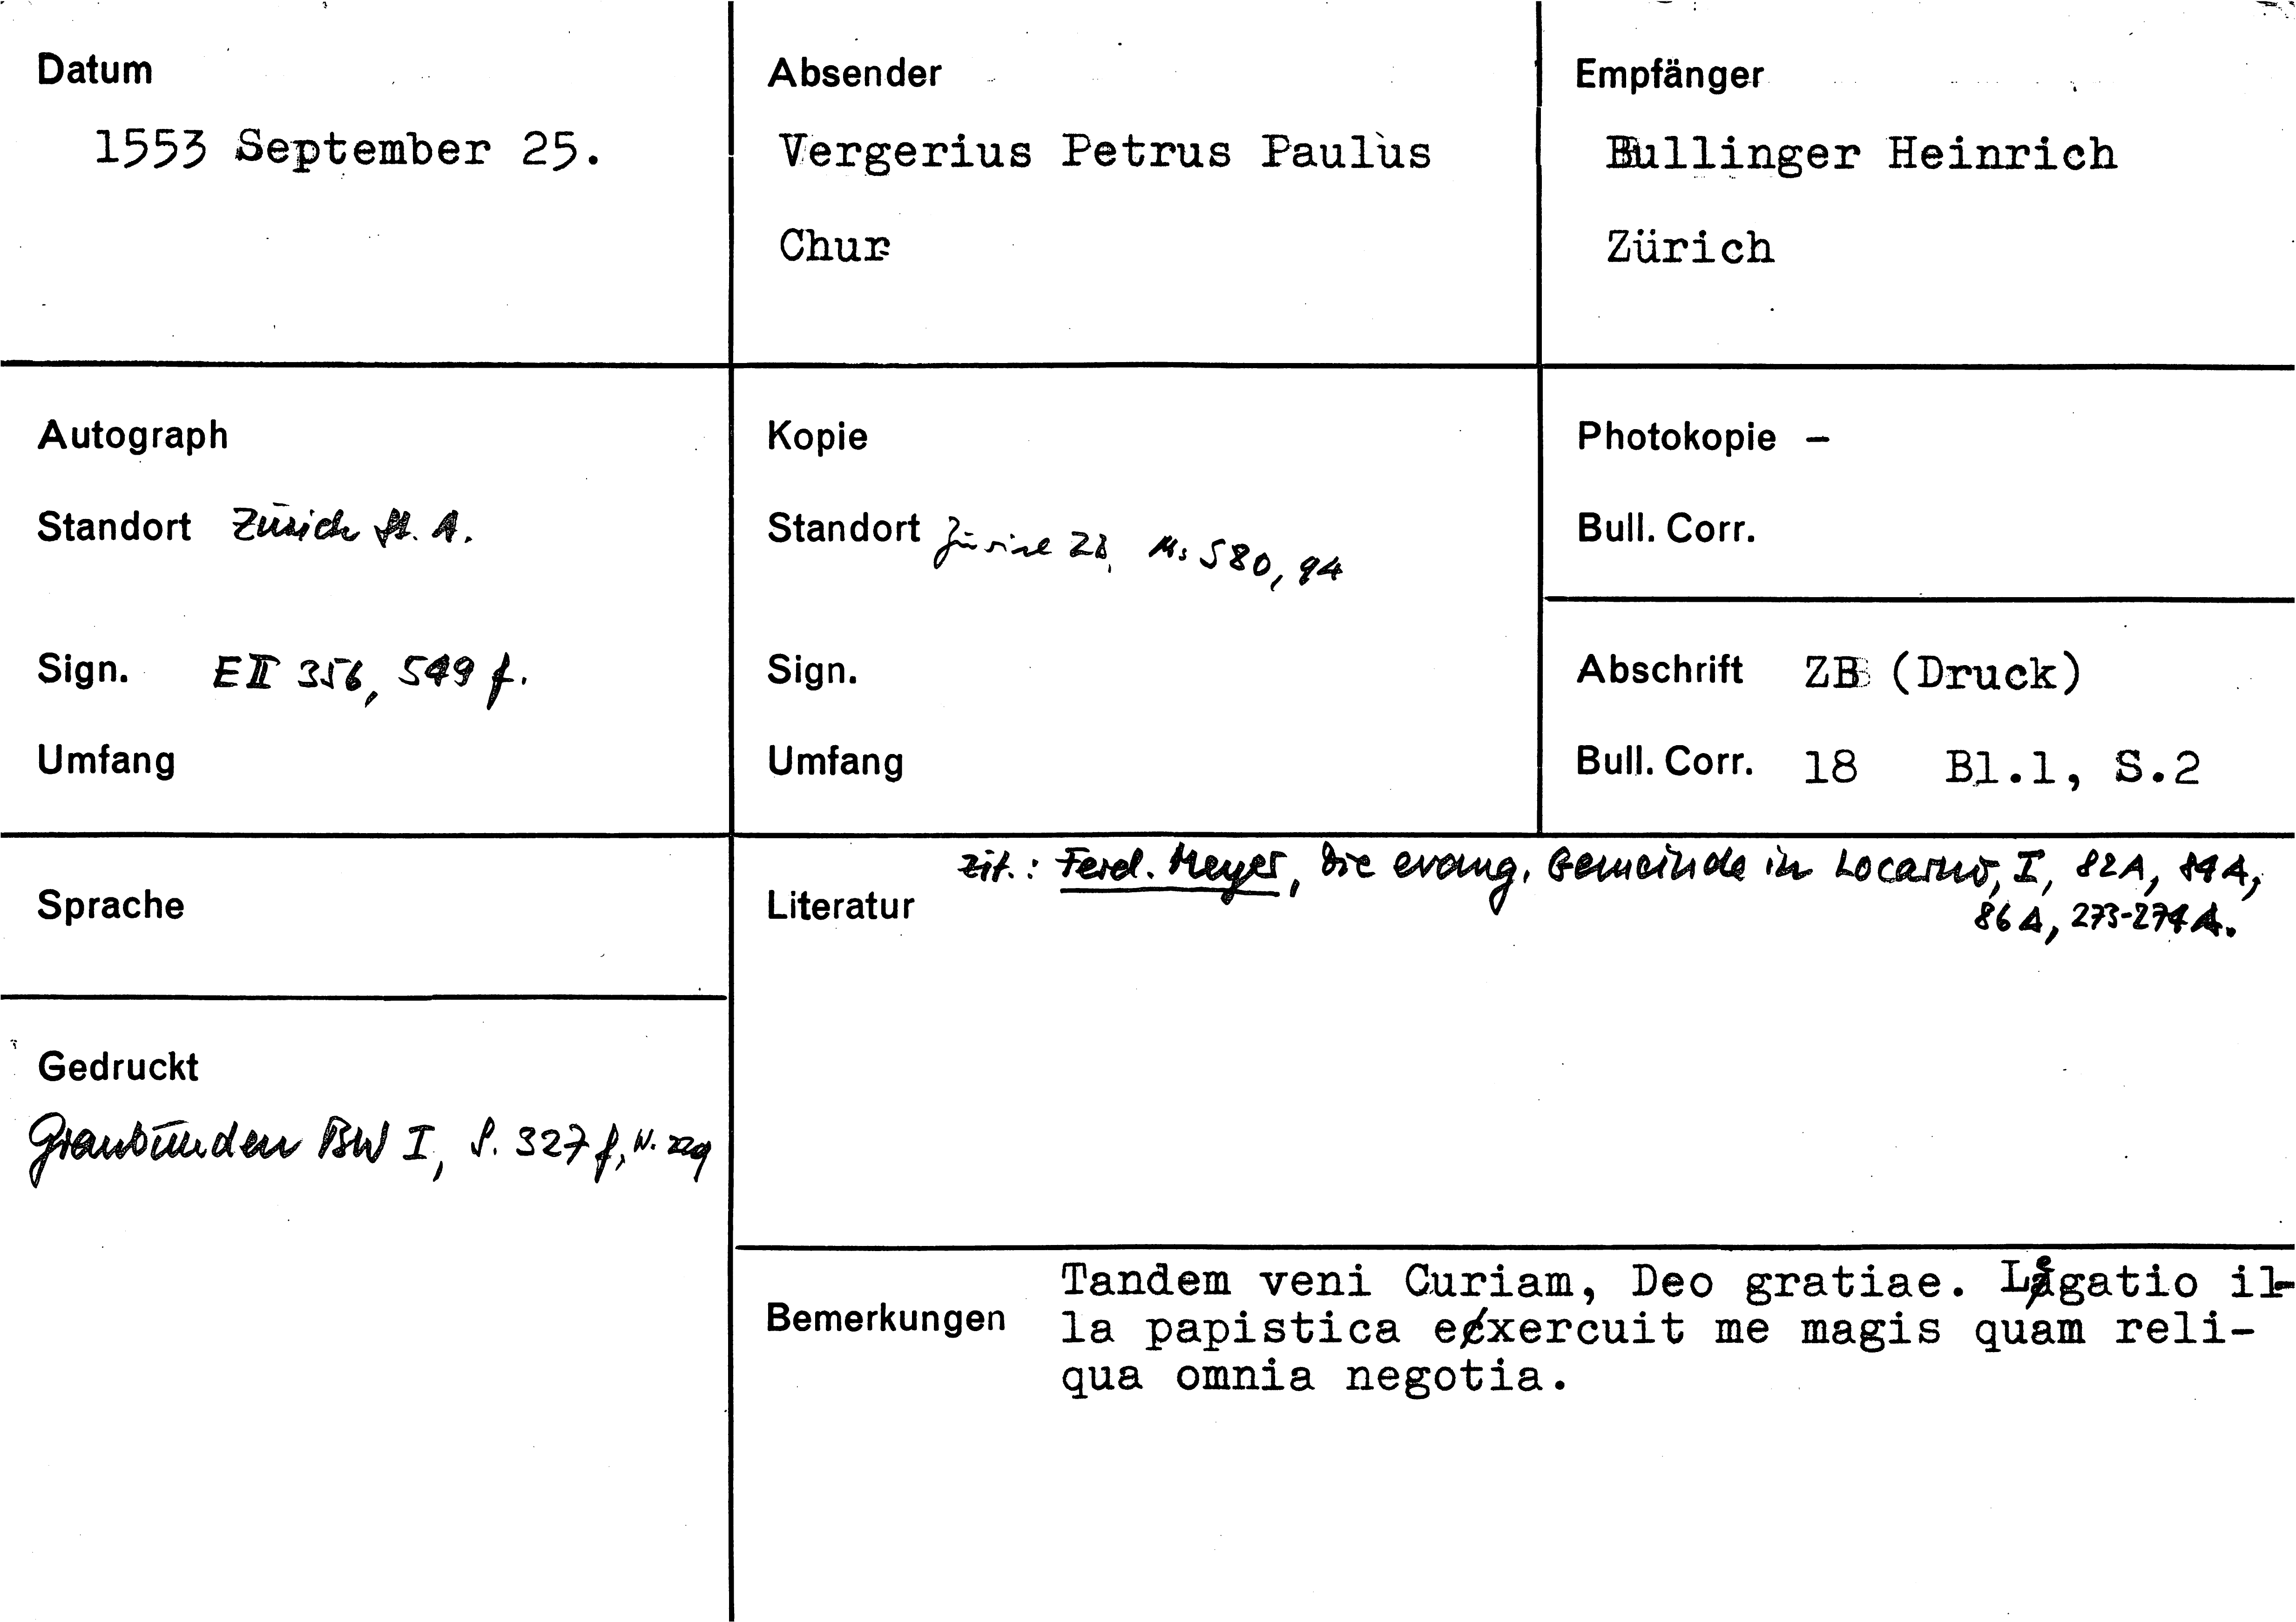 Datum
1553 September 25.
Absender
Vergerius Petrus Paulus
Chur
Empfänger
Bullinger Heinrich
Zürich
Autograph
Standort Zürich St. A.
Sign. E II 356, 549 f.
Umfang
Kopie
Standort Zürich ZB, Ms S 80, 94
Sign.
Umfang
Photokopie –
Bull. Corr.
Abschrift ZB (Druck)
Bull. Corr. 18 Bl.1, S.2
Sprache
Gedruckt
Graubünden BW I, S. 327 f, N. 229
Literatur
zit.: Ferd. Meyer, Die evang. Gemeinde in Locarno, I, 82 A, 84 A,
86 A, 273-274 A.
Bemerkungen
Tandem veni Curiam, Deo gratiae. Legatio il-
la papistica exercuit me magis quam reli-
qua omnia negotia.